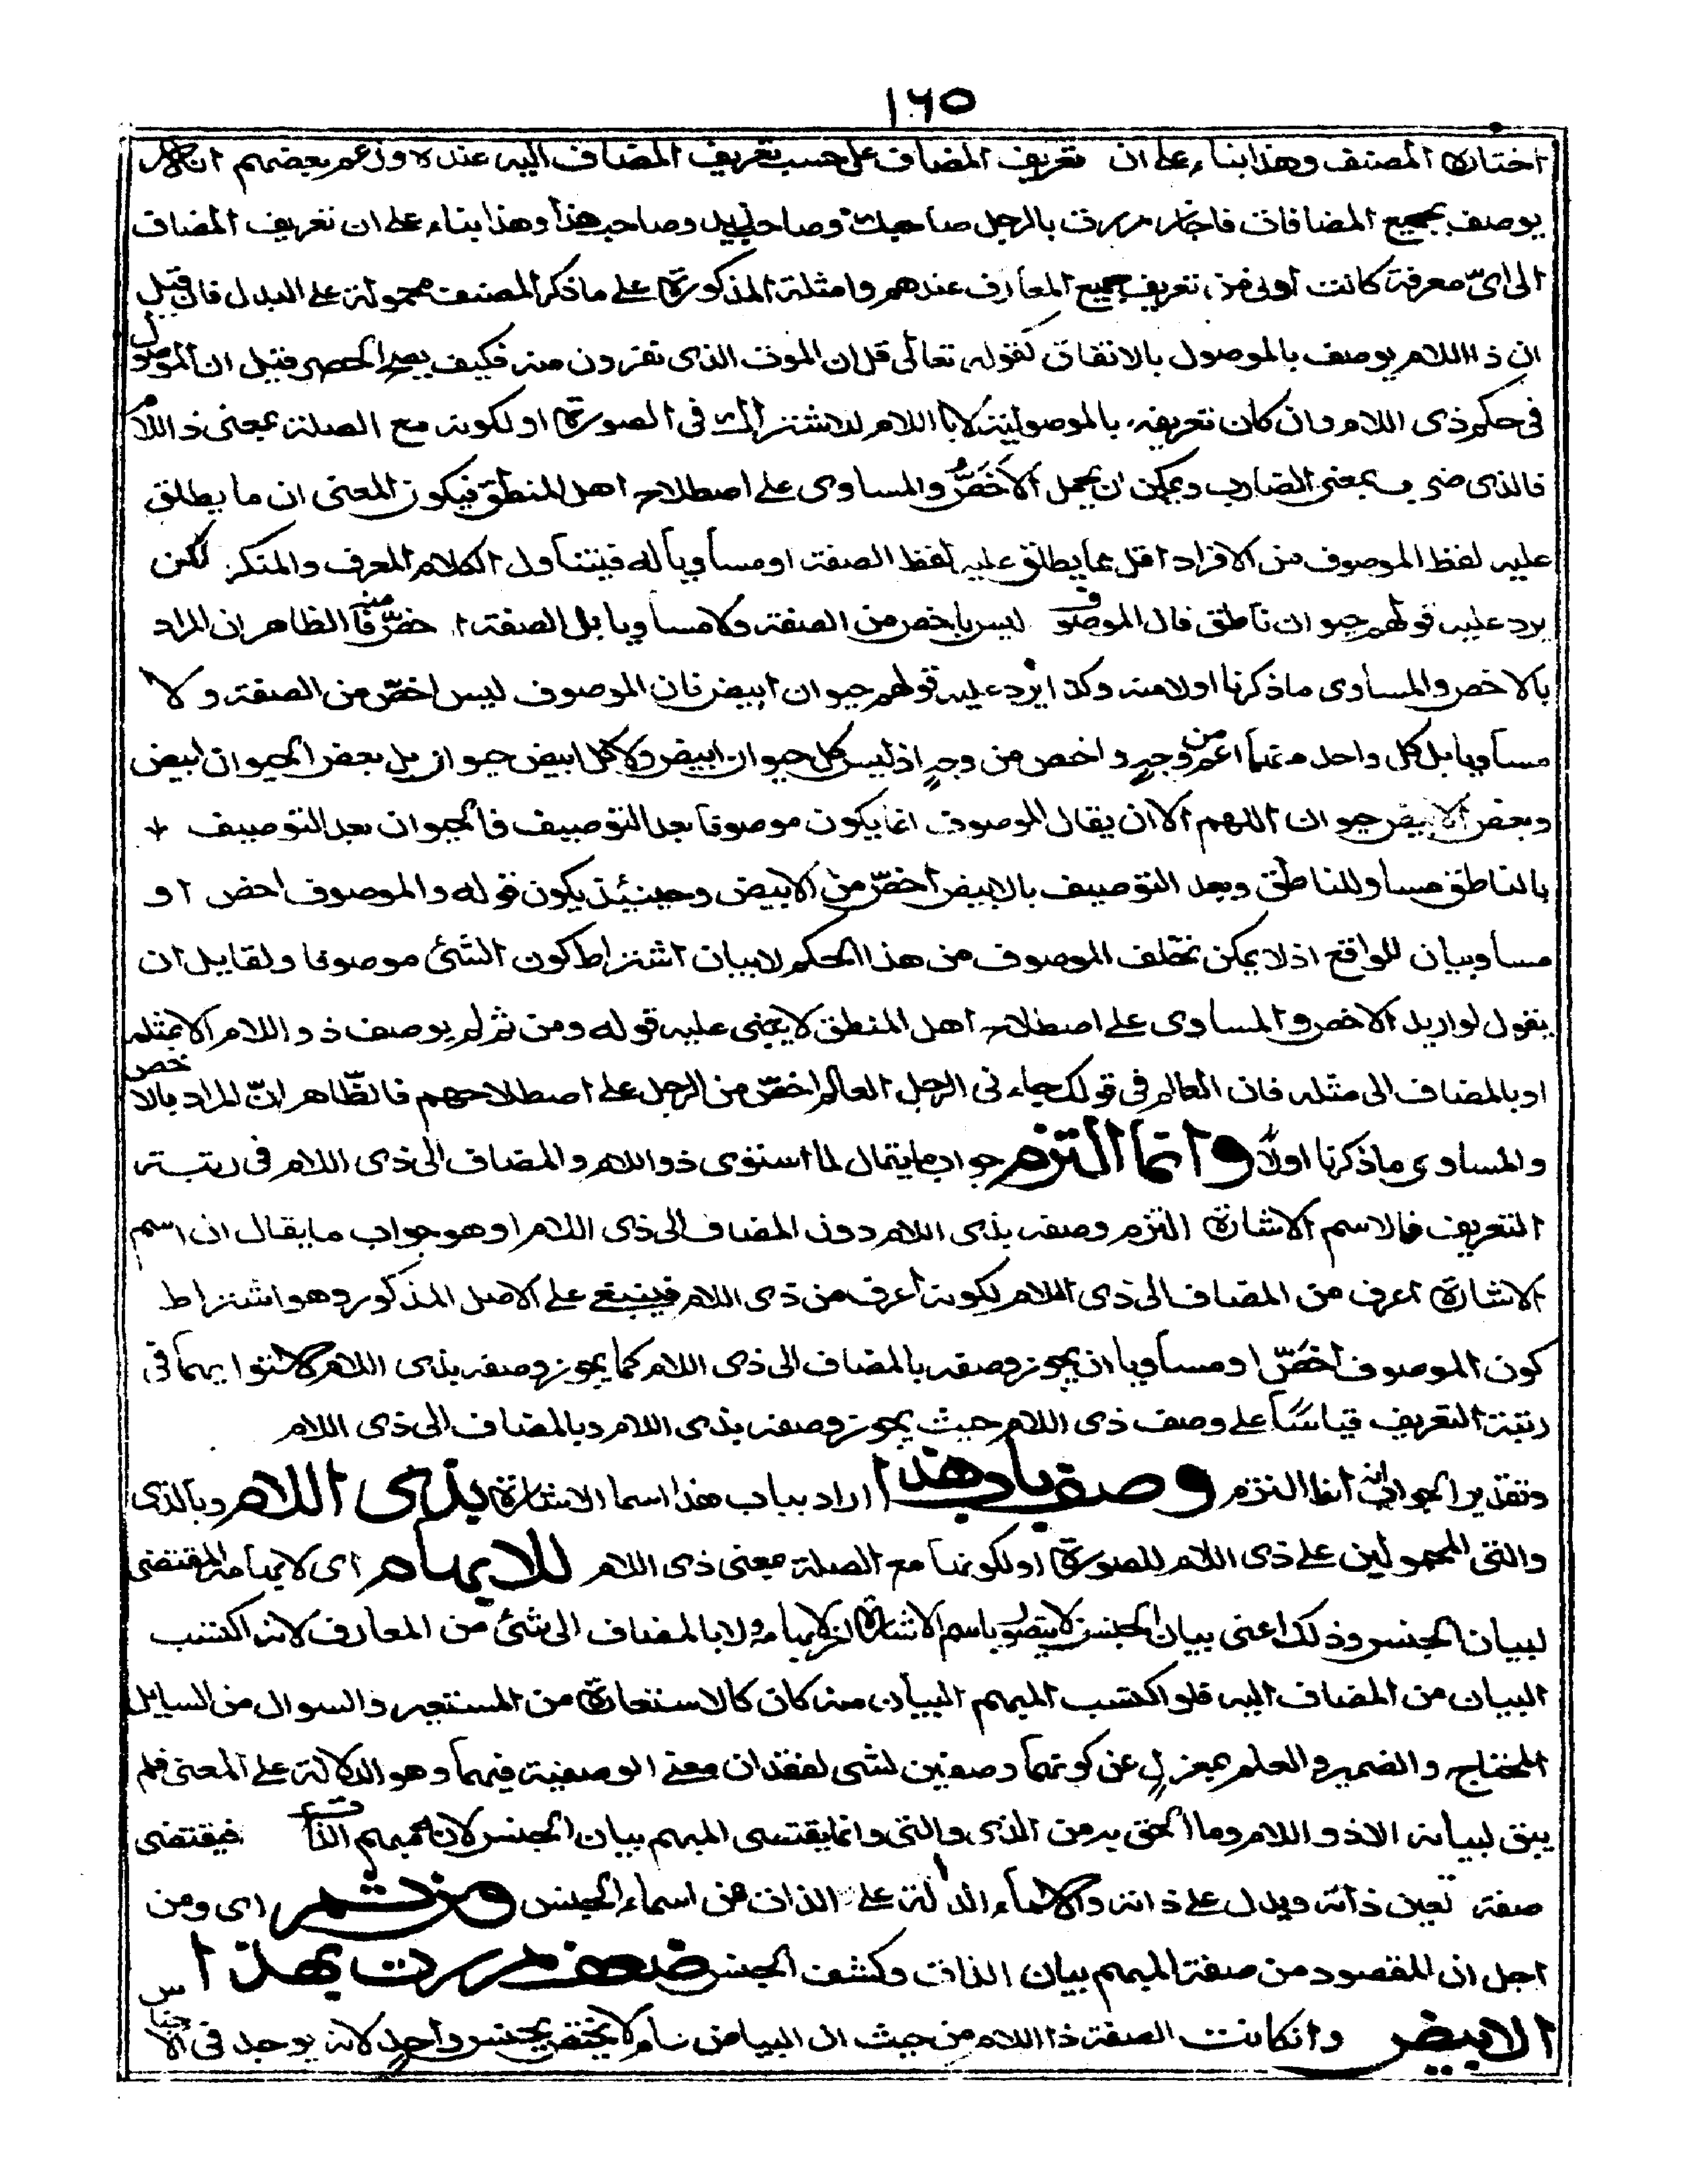 ١٦٥
اختاره المصنف وهذا بناء على ان تعريف المضاف على حسب تعريف المضاف اليه عنده وزعم بعضهم ان
يوصف بجميع المضافات فاجاز مررت بالرجل صاحبك وصاحب زيد وصاحب هذا وهذا بناء على ان تعريف المضاف
الى اىّ معرفة كانت ادنى من تعريف جميع المعارف عندهم وامثلة المذكورة على ما ذكر المصنف محمولة على البدل فان قيل
ان ذا اللام يوصف بالموصول بالاتفاق كقوله تعالى قل ان الموت الذى تفرون منه فكيف يصح الحصر فقيل ان الموصول
فى حكم ذى اللام وان كان تعريفه بالموصولية لا باللام لاشتراك فى الصورة او لكونه مع الصلة بمعنى ذ اللام
فالذى ضرب بمعنى الضارب ويمكن ان يحمل الاخصّ والمساوى على اصطلاح اهل المنطق فيكون المعنى ان ما يطلق
عليه لفظ الموصوف من الافراد اقل مما يطلق عليه لفظ الصفة او مساويا له فيتناول الكلام المعرف والمنكر لكن
يرد عليه قولهم حيوان ناطق فان الموصوف ليس باخص من الصفة ولا مساويا بل الصفة اخصّ منه فالظاهر ان المراد
بالاخص والمساوى ما ذكرنا اولا منه وكذا يرد عليه قولهم حيوان ابيض فان الموصوف ليس اخصّ من الصفة ولا
مساويا بل كل واحد منهما اعم من وجهٍ واخص من وجهٍ اذ ليس كل حيوان ابيض ولا كل ابيض حيوان بل بعض الحيوان ابيض
وبعض الابيض حيوان اللهم الا ان يقال الموصوف انما يكون موصوفا بعد التوصيف فالحيوان بعد التوصيف
بالناطق مساو للناطق وبعد التوصيف بالابيض اخصّ من الابيض وحينئذ يكون قوله والموصوف اخص او
مساو بيان للواقع اذ لا يمكن تخلف الموصوف من هذا الحكم لا بيان اشتراط كون الشئ موصوفا ولقايل ان
يقول لو اريد الاخص والمساوى على اصطلاح اهل المنطق لا يبتنى عليه قوله ومن ثم لم يوصف ذو اللام الا بمثله
او بالمضاف الى مثله فان العالم فى قولك جاءنى الرجل العالم اخصّ من الرجل على اصطلاحهم فالظّاهر انّ المراد بالاخص
والمساوى ما ذكرنا اولاً وانما التزم جواب ما يقال لما استوى ذو اللام والمضاف الى ذى اللام فى رتبة
التعريف فالاسم الاشارة التزم وصفه بذى اللام دون المضاف الى ذى اللام او هو جواب ما يقال ان اسم
الاشارة اعرف من المضاف الى ذى اللام لكونه اعرف من ذى اللام فينبغى على الاصل المذكور وهو اشتراط
كون الموصوف اخصّ او مساويا ان يجوز وصفه بالمضاف الى ذى اللام كما يجوز وصفه بذى اللام لاستوايهما فى
رتبة التعريف قياسًا على وصف ذى اللام حيث يجوز وصفه بذى اللام وبالمضاف الى ذى اللام
وتقدير الجواب انه انما التزم وصف باب هذا اراد بباب هذا اسما الاشارة بذى اللام وبالذى
والتى المحمولين على ذى اللام للصورة او لكونهما مع الصلة بمعنى ذى اللام للابهام اى لابهامه المقتضى
لبيان الجنس وذلك اعنى بيان الجنس لا يتصور باسم الاشارة لابهامه ولا بالمضاف الى شئ من المعارف لانه اكتسب
البيان من المضاف اليه فلو اكتسب المبهم البيان منه كان كالاستعارة من المستعير والسوال من السايل
المحتاج والضمير والعلم بمعزلٍ عن كونهما وصفين لشى لفقدان معنى الوصفية فيهما وهو الدلالة على المعنى فلم
يبق لبيانه الا ذو اللام وما الحق به من الذى والتى وانما يقتضى المبهم بيان الجنس لانه مبهم الذات فيقتضى
صفة تعين ذاته ويدل على ذاته والاسماء الدالة على الذات من اسماء الجنس ومن ثم اى ومن
اجل ان المقصود من صفة المبهم بيان الذات وكشف الجنس ضعف مررت بهذا
الابيض وان كانت الصفة ذا اللام من حيث ان البياض عام لا يختص بجنس واحدٍ لانه يوجد فى الاجناس